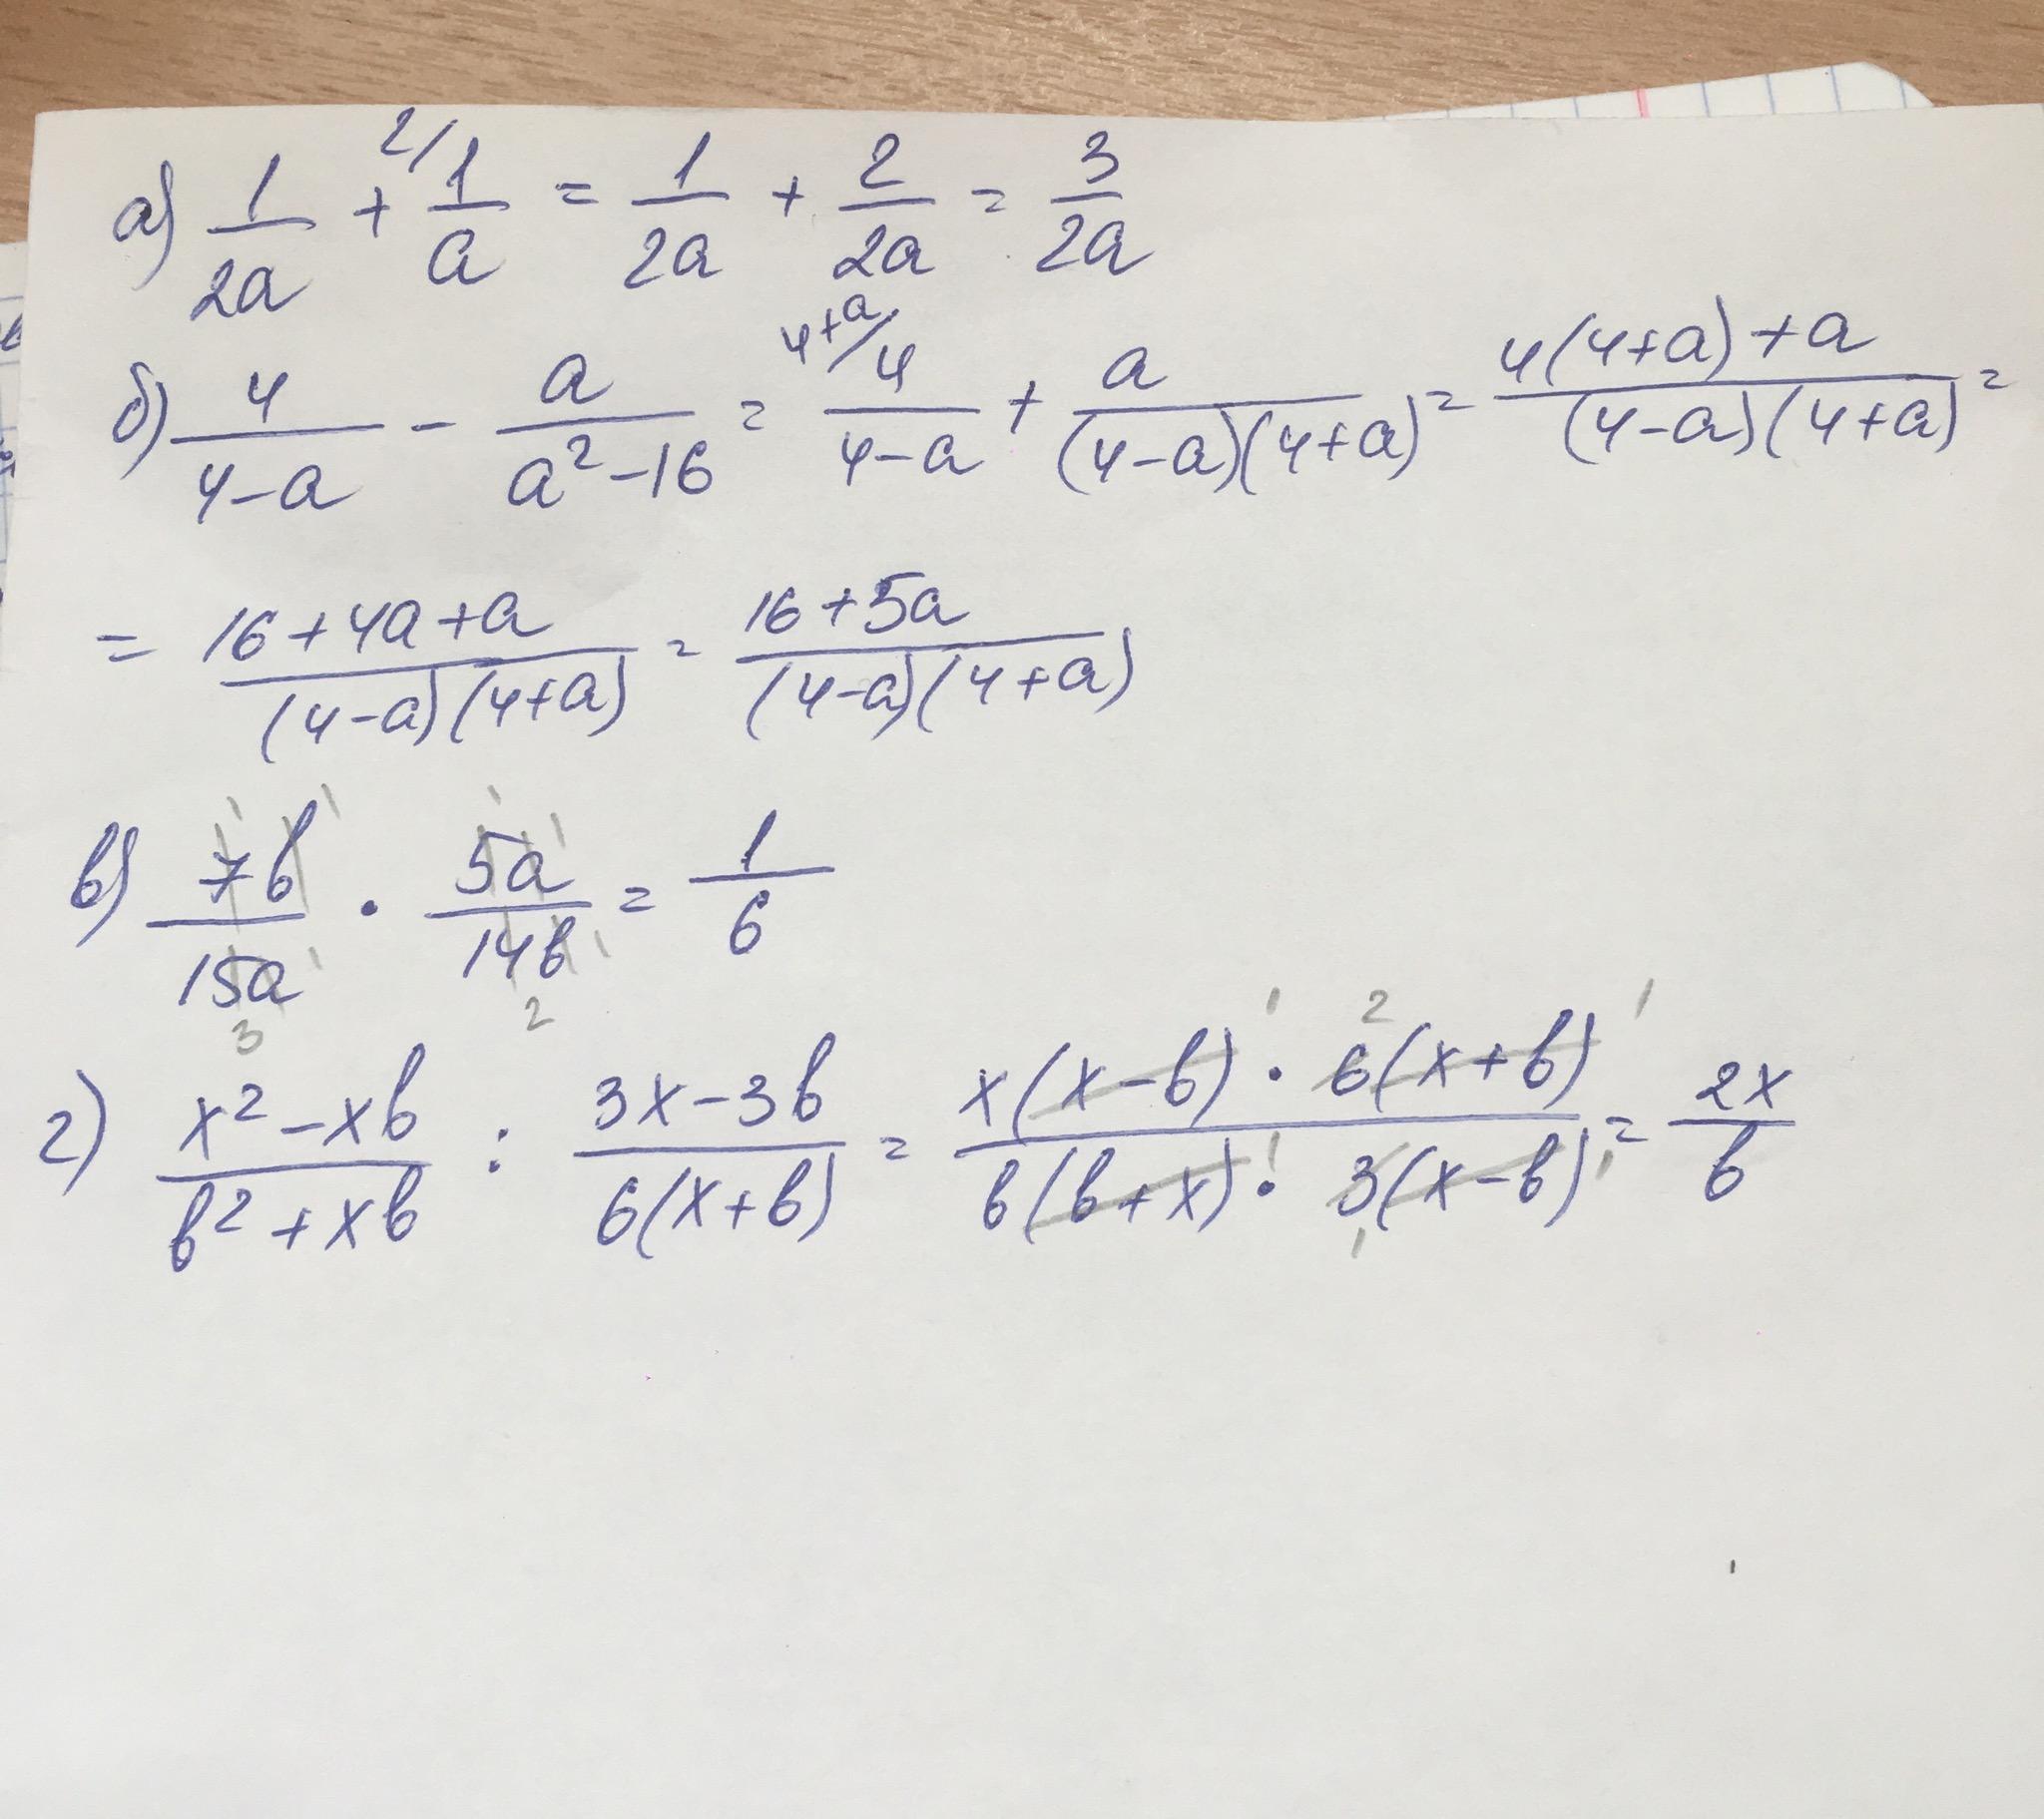 а) 1/2a + ²/1/a = 1/2a + 2/2a = 3/2a
б) 4/(4-a) - a/(a²-16) = ⁴⁺ᵃ/4/(4-a) + a/((4-a)(4+a)) = (4(4+a)+a)/((4-a)(4+a)) =
= (16+4a+a)/((4-a)(4+a)) = (16+5a)/((4-a)(4+a))
в) 7b/15a · 5a/14b = 1/6
г) (x²-xb)/(b²+xb) : (3x-3b)/(6(x+b)) = (x(x-b) · 6(x+b))/(b(b+x) · 3(x-b)) = 2x/b